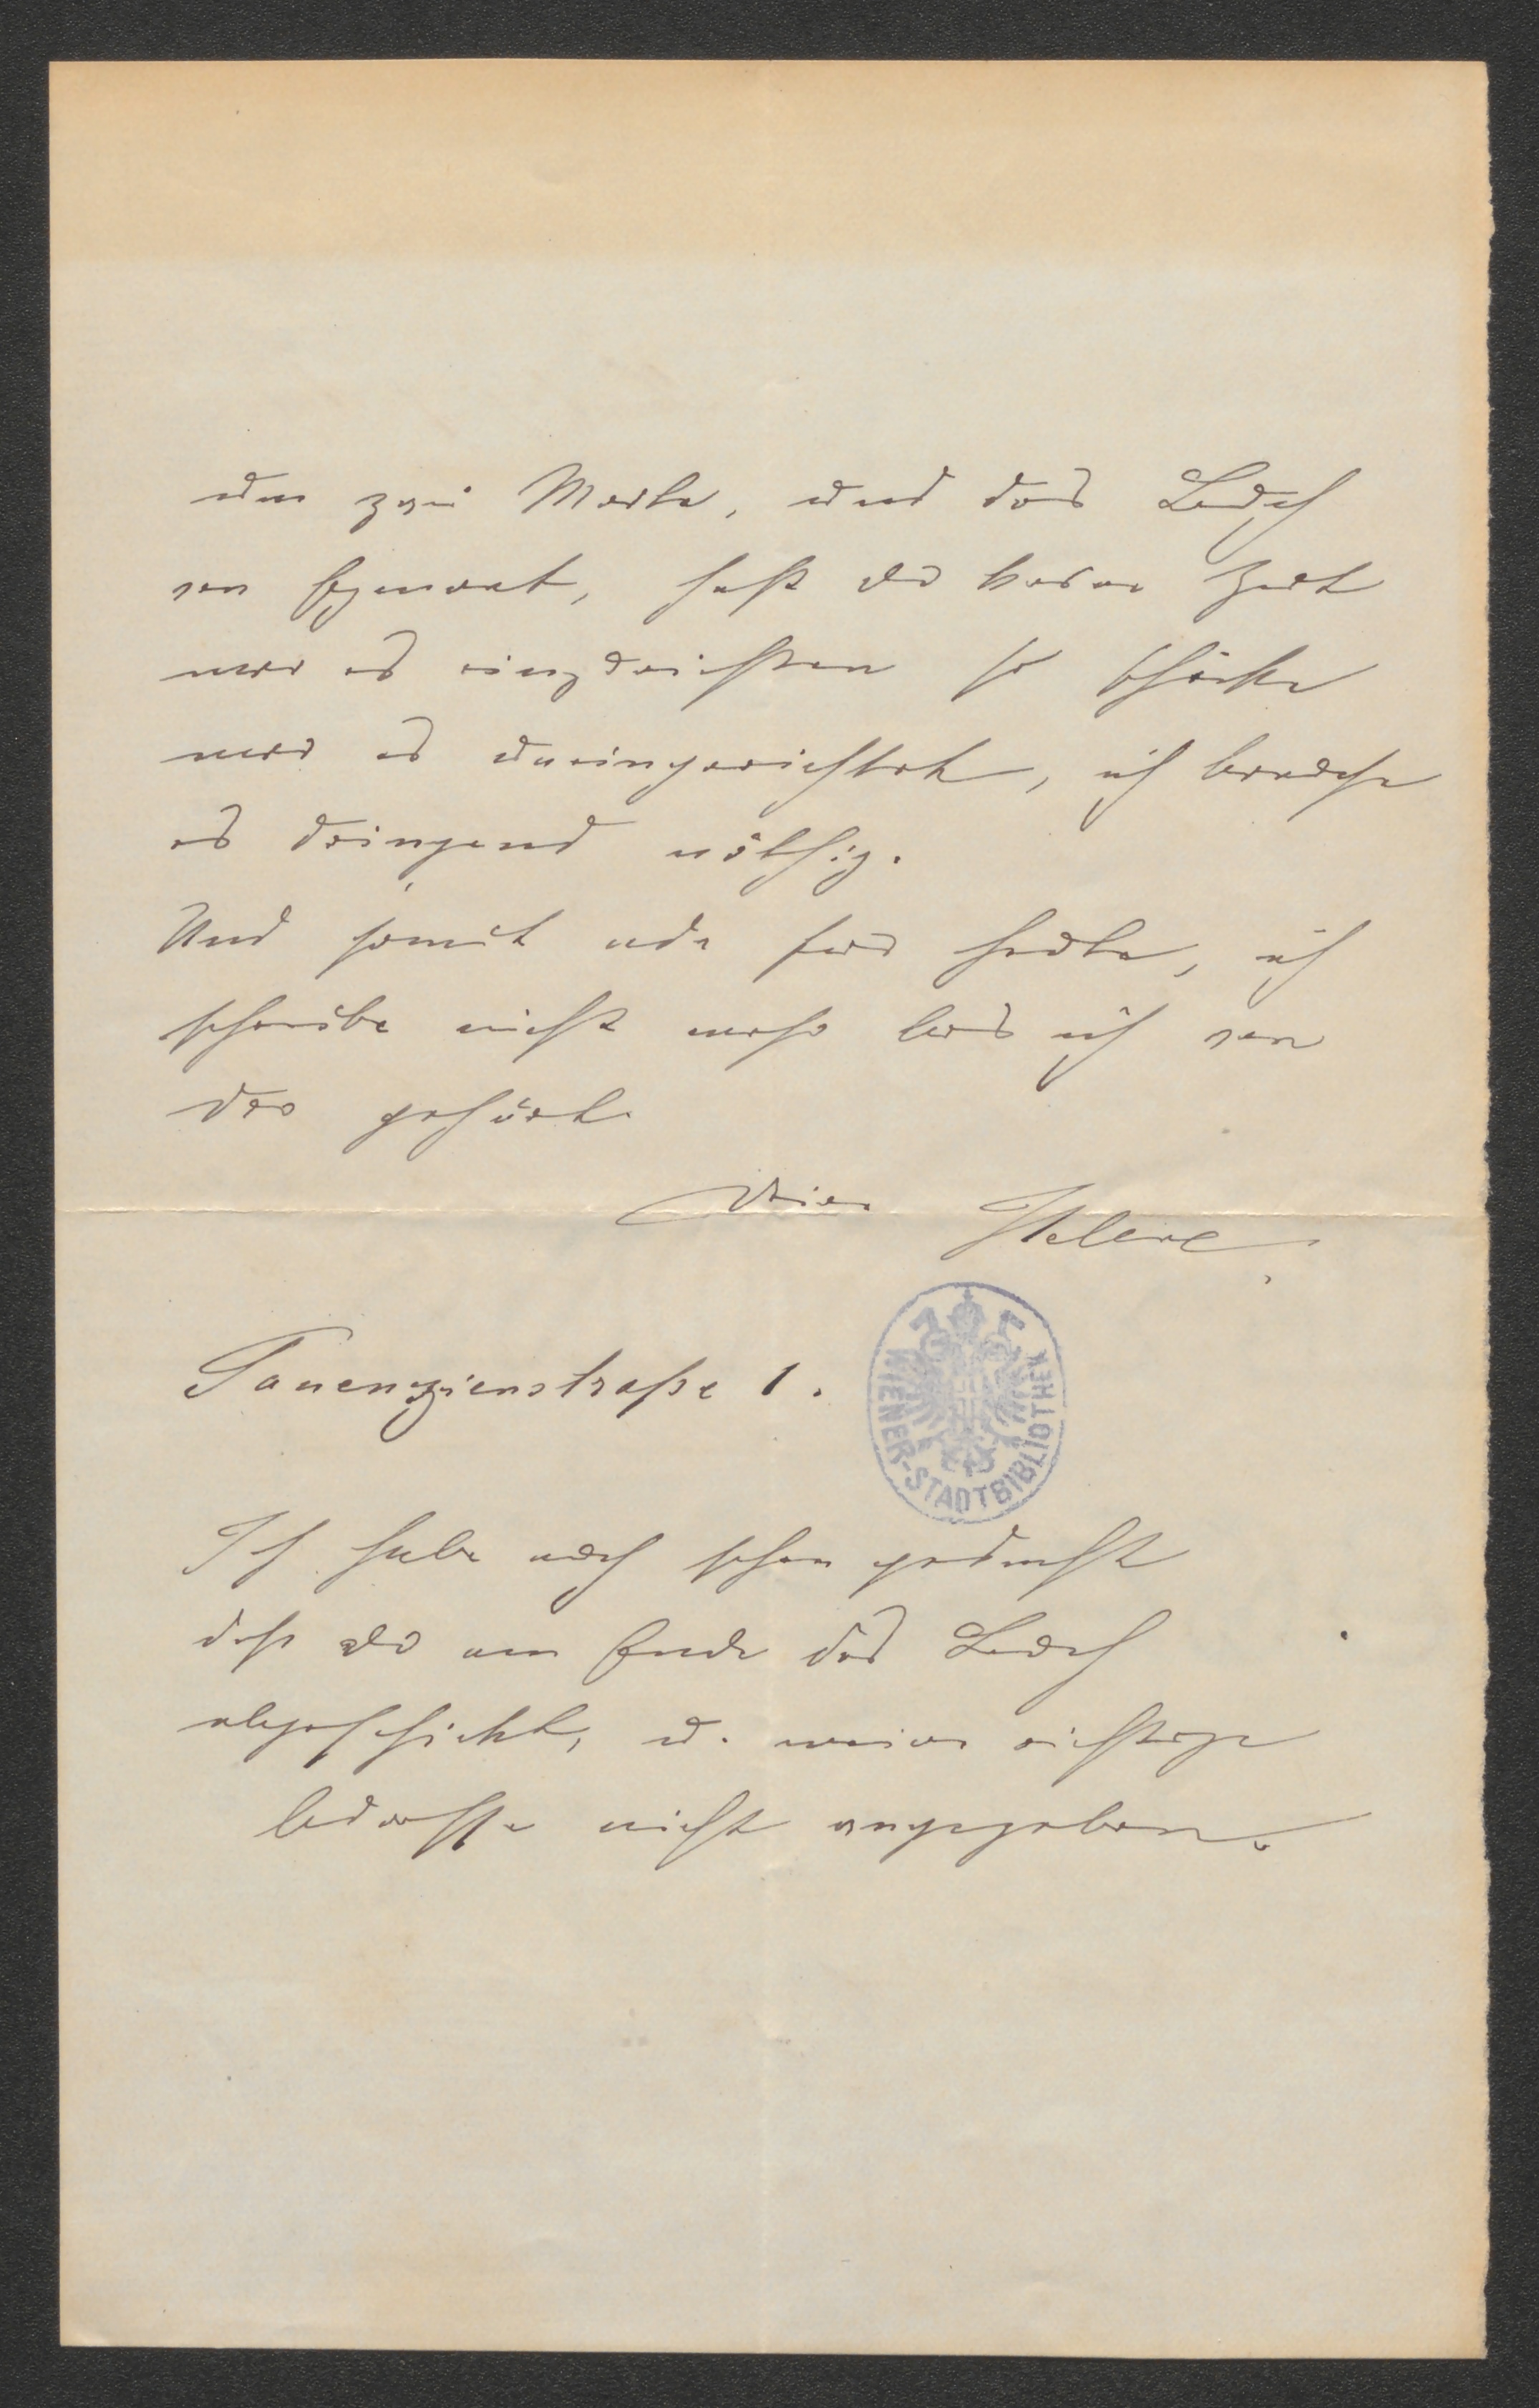 um zwei Worte, und das Buch
von Egmont, hast du keine Zeit
mir es einzurichten so schicke
mir es uneingerichtet, ich brauche
es dringend nöthig.
Und somit ade für heute, ich
schreibe nicht mehr bis ich von
dir gehört.
Deine Helene
Tauenzienstraße 1.
WIENER-STADTBIBLIOTHEK
Ich habe auch schon gedacht
daß du am Ende das Buch
abgeschickt, u. meine richtige
Adresse nicht angegeben.